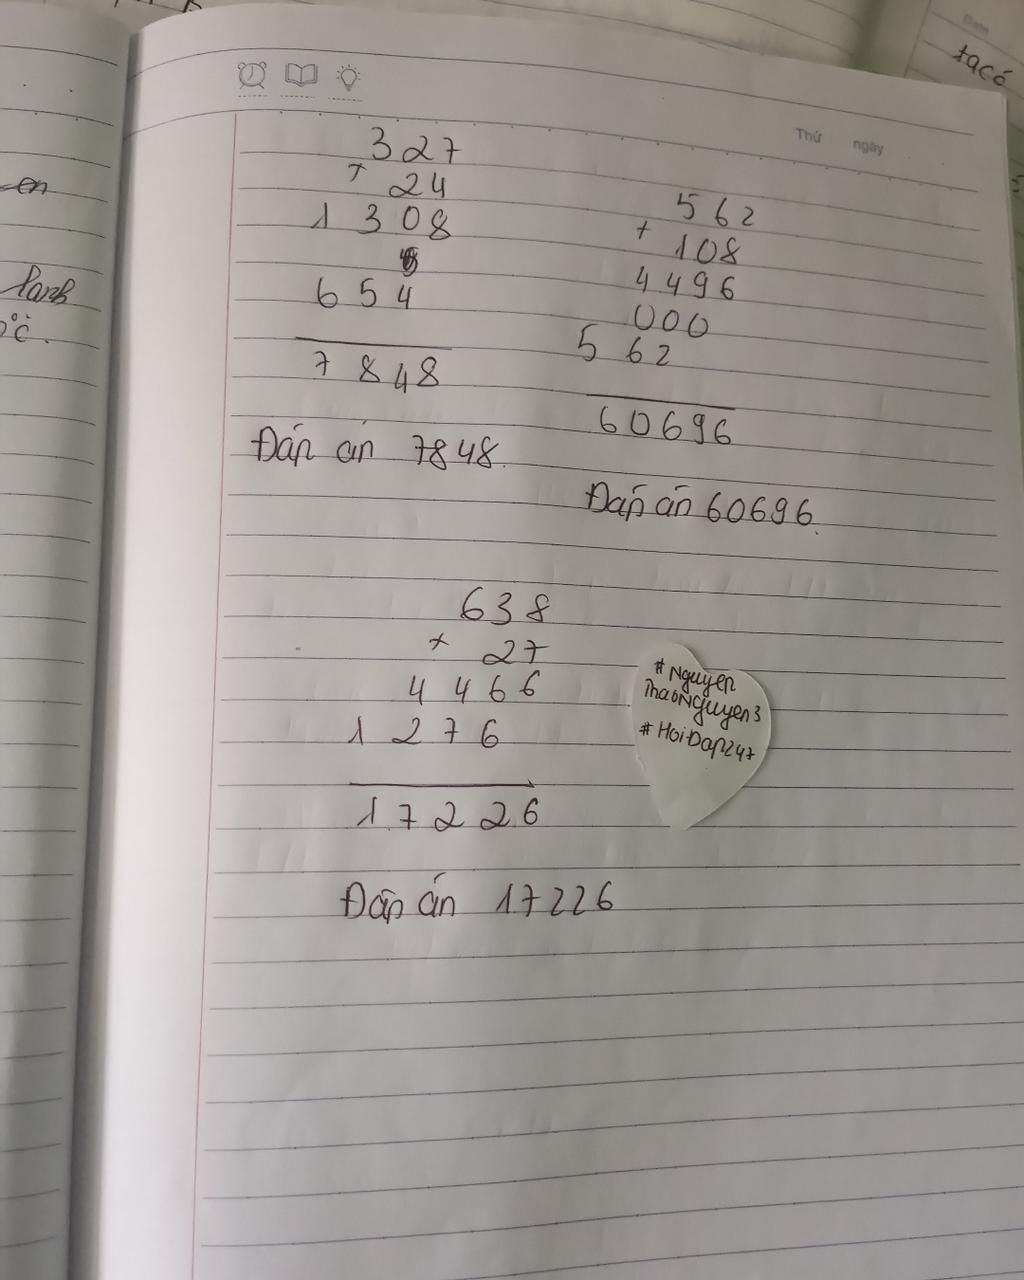 Thứ ngày
327
× 24
1308
654
7848
Đáp án 7848.
562
× 108
4496
000
562
60696
Đáp án 60696.
638
× 27
4466
1276
17226
Đáp án 17226
#Nguyen
ThaoNguyen3
#HoiDap247
Date
ta có
en